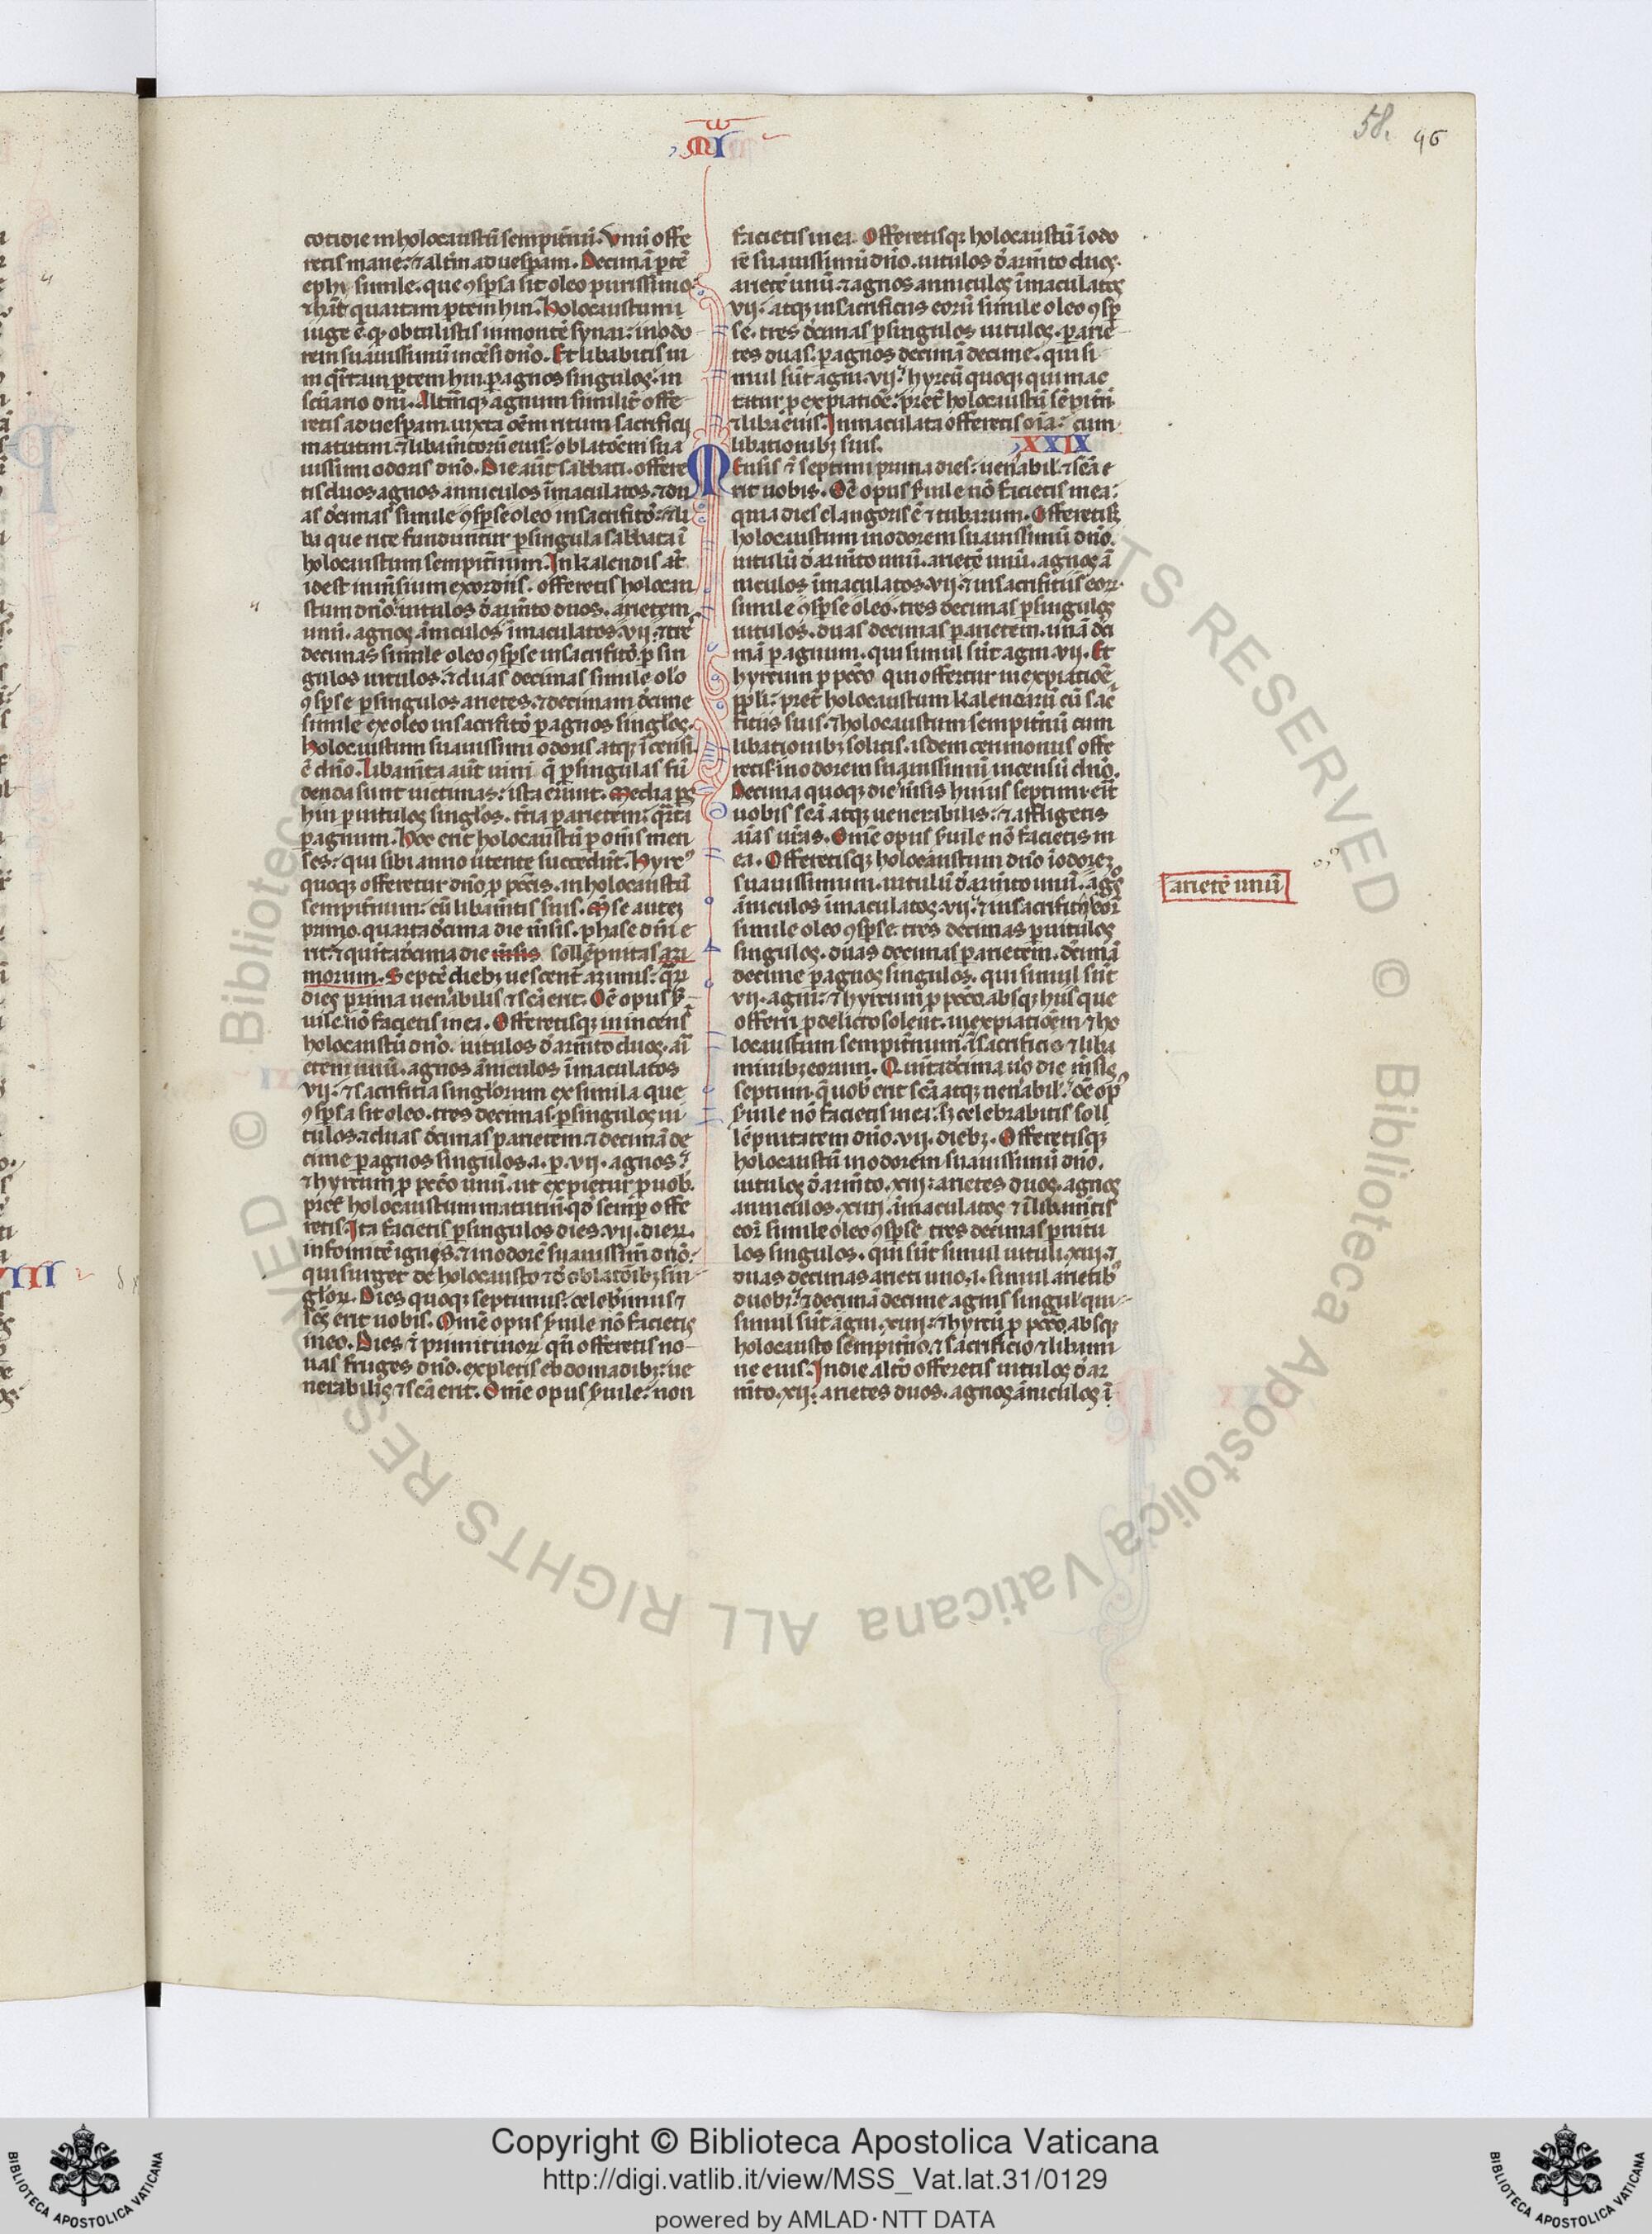 58. 46
MI
cotidie in holocaustū sempitnū. Unū offe
retis mane: ⁊ altm̄ ad uesꝑam. Decimā ptē
ephi simile. que ꝯsꝑsa sit oleo purissimo.
⁊ hāt quartam ptem hin. Holocaustum
iuge ē qͥ obtulistis in montē synai: in odo
rem suauissimū incēsi dn̄o. Et libabitis ui
ni qͬtam ptem hin. ꝑ agnos singulos: in
sc̄uario dn̄i. Altm̄qꝫ agnum similit̄ offe
retis ad uesꝑam. iuxta oēm ritum sacrificij
matutini. ⁊ libam̄torū eius: oblatōem sua
uissimi odoris dn̄o. Die aūt sabbati. offere
tis duos agnos anniculos īmaculatos. ⁊ du
as dcimas simile ꝯsꝑse oleo in sacrifitō: ⁊ li
ba que rite funduntur ꝑ singula sabbata ī
holocaustum sempitn̄um. In kalendis aūt
idest mn̄sium exordiis. offeretis holocau
stum dn̄o: uitulos d̄ armto duos. arietem
unū. agnos āniculos īmaculatos. vii. ⁊ tres
decimas simile oleo ꝯsꝑse in sacrifitō. ꝑ sin
gulos uitulos. ⁊ duas decimas simile oleo
ꝯsꝑse ꝑ singulos arietes. ⁊ decimam dcime
simile ex oleo in sacrifitō ꝑ agnos singlos.
holocaustum suauissimi odoris atqꝫ īcensi
ē dn̄o. Libam̄ta aūt uini q̄ ꝑ singulas fū
denda sunt uictimas: ista erūnt. Media ps
hin ꝑ uitulos singlos. tt̄ia ꝑ arietem: qͬta
ꝑ agnum. Hoc erit holocaustū ꝑ om̄s men
ses: qui sibi anno ūtente succedūt. Hyrcꝰ
quoqꝫ offeretur dn̄o ꝓ pccīs. in holocaustū
sempitn̄um: cū libam̄tis suis. Mn̄se autē
primo. quarta dcima die mn̄sis. phase dn̄i e
rit: ⁊ quīta dcima die mn̄sis sollēpnitas azi
morum. Septē diebꝫ uescent̄ azimis: qͬꝝ
dies prima uenabilis ⁊ sc̄a erit. Oē opus s̄
uile nō facietis in ea. Offeretisqꝫ in incens̄
holocaustū dn̄o. uitulos d̄ armto duos. ari
etem unū. agnos āniculos īmaculatos
vii: ⁊ sacrifitia singlorum ex simila que
ꝯsꝑsa sit oleo. tres decimas. ꝑ singulos ui
tulos. ⁊ duas dcimas ꝑ arietem. ⁊ decimā de
cime ꝑ agnos singulos. i. ꝑ. vii. agnos:
⁊ hyrcum ꝓ pccō unū. ut expietur ꝓ uob̄.
pret̄ holocaustum matutinū. qd semꝑ offe
retis. Ita facietis ꝑ singulos dies. vii. dieꝝ.
in fomitē ignis. ⁊ in odorē suauissim̄ dn̄o:
qui surget de holocausto ⁊ d̄ oblatōibꝫ sin
gloꝝ. Dies quoqꝫ septimus: celebrimus ⁊
sc̄s erit uobis. Omē opus s̄uile nō facietis
in eo. Dies ē primitiuoꝝ qn̄ offeretis no
uas fruges dn̄o. expletis ebdomadibꝫ: ue
nerabilis ⁊ sc̄a erit. Omē opus s̄uile: non
facietis in ea. Offeretisqꝫ holocaustū ī odo
rē suauissimū dn̄o. uitulos d̄ armto duos.
arietē unū. ⁊ agnos anniculos īmaculatos
vii. atqꝫ in sacrificiis eorū simile oleo ꝯsꝑ
se. tres dcimas ꝑ singulos uitulos. ꝑ arie
tes duas. ꝑ agnos decimā decime. qui si
mul sūt agni. vii: hyrcū quoqꝫ qui mac
tatur ꝓ expiatiōe: pret̄ holocaustū sēpitn̄
⁊ liba eius. Inmaculata offeretis oīa: cum
libationibꝫ suis. XXIX
Mensis ē septimi prima dies: uenabil̄ ⁊ sc̄a e
rit uobis. Oē opus s̄uile nō facietis in ea:
quia dies clangoris ē ⁊ tubarum. Offeretisqꝫ
holocaustum in odorem suauissimū dn̄o.
uitulū d̄ armto unū. arietē unū. agnos ā
niculos īmaculatos. vii. ⁊ in sacrifitiis eoꝝ
simile ꝯsꝑse oleo. tres decimas ꝑ singulos
uitulos. duas decimas ꝑ arietem. unā dci
mā ꝑ agnum. qui simul sūt agni. vii. Et
hyrcum ꝓ pccō qui offertur in expiatiōē
ppli: pret̄ holocaustum kalendarū cū sac̄
fitiis suis. ⁊ holocaustum sempitn̄ū cum
libationibꝫ solitis. isdem cerimoniis offe
retis in odorem suauissimū incensū dn̄o.
Decima quoqꝫ die mn̄sis huius septimi. erit
uobis sc̄a atqꝫ uenerabilis: ⁊ affligetis
aīas ur̄as. Omē opus s̄uile nō facietis in
ea. Offeretisqꝫ holocaustum dn̄o ī odorē
suauissimum. uitulū d̄ armto unū. agnos
āniculos īmaculatos. vii: ⁊ in sacrifitiis eoꝝ
simile oleo ꝯsꝑse. tres decimas ꝑ uitulos
singulos. duas decimas ꝑ arietem. dcimā
decime ꝑ agnos singulos. qui simul sūt
vii. agni: ⁊ hyrcum ꝓ pccō. absqꝫ his que
offerri ꝓ delicto solent. in expiatiōem ⁊ ho
locaustum sempitn̄um ī sacrificio ⁊ liba
minibꝫ eorum. Quīta dcima uͦ die mn̄sis
septimi. q̄ uob̄ erit sc̄a atqꝫ uenabil̄: oē opꝰ
s̄uile nō facietis in ea: sꝫ celebrabitis soll
lēpnitatem dn̄o. vii. diebꝫ. Offeretisqꝫ
holocaustū in odorem suauissimū dn̄o.
uitulos d̄ armto. xiij: arietes duos. agnos
anniculos. xiiij. īmaculatos ⁊ ī libam̄tis
eoꝝ simile oleo ꝯsꝑse tres decimas ꝑ uitu
los singulos. qui sūt simul uituli. xiij. ⁊
duas decimas arieti uno. i. simul arietibꝰ
duobꝫ. ⁊ decimā decime agnis singul̄ qui
simul sūt agni. xiiij. ⁊ hyrcū ꝓ pccō. absqꝫ
holocausto sempitn̄o. ⁊ sacrificio ⁊ libami
ne eius. In die altō offeretis uitulos d̄ ar
mn̄to. xij: arietes duos. agnos āniculos ī
arietē unū
Copyright © Biblioteca Apostolica Vaticana
http://digi.vatlib.it/view/MSS_Vat.lat.31/0129
powered by AMLAD·NTT DATA